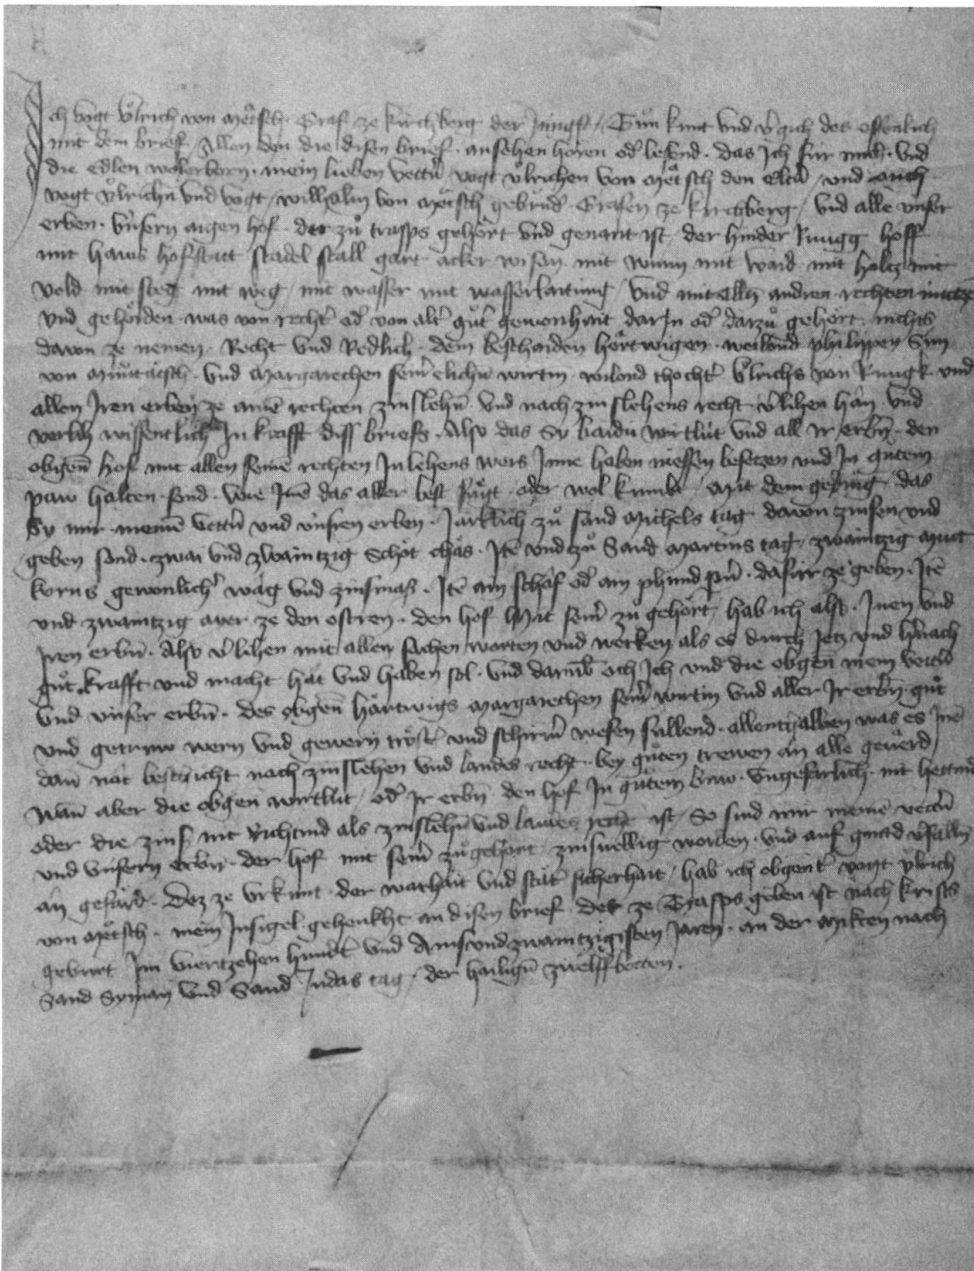 Ich vogt Ůlrich von Mätsch Graf ze Kirchberg der Jüngst Tůn kunt vnd vergich des offenlich
mit dem brief Allen den die disen brief ansehen hören oder lesend das Ich für mich vnd
die edlen wolerborn mein lieben vettern vogt Ůlrichen von Mätsch den eltern vnd auch
vogt Ůlrichn vnd vogt Willhalm von Mätsch gebrüd Grafen ze Kirchberg vnd alle vnser
erben vnsern aigen hof der zů trasps gehört vnd genant ist der hinder Rungg hoff
mit haws hofstatt stadel stall gart äcker wisen mit wunn mit waid mit holtz mit
veld mit steg mit weg mit wasser mit wasserlaitung vnd mit allen andren rechten nutzen
vnd gehörden was von recht od von alt gůt gewonhait darJn od darzů gehört nichts
davon ze nemen Recht vnd Redlich dem beschaiden Hertwigen weilend philippen Sun
von vnd Margarethen seiner elichn wirtin wilond thocht Ůlrichs von Rungk vnd
allen Jren erben ze ainem rechten zinslehn vnd nach zinslehens recht verlihen han vnd
verlih wissentlich Jn krafft diss briefs Also das Sy baidu wirtlüt vnd all ir erbn den
obgen hof mit allen seinen rechten Jn lehens weis Jnne haben niessen besetzen vnd Jn gutem
paw halten send wie Jnen das aller best fügt oder wol kumbt Mit dem geding das
Sy mir meinen vettern vnd vnsren erben Järklich zů sand Michels tag davon zinsen vnd
geben sond zwai vnd zwaintzig Schöt chäs Jtem vnd zů Sand Martins tag zwaintzig mutt
korns gewonlicher wäg vnd zinsmass Jtem ain schaf od ain phund perner dafür ze geben Jtem
vnd zwaintzig ayer ze den ostren den hof Mit seiner zůgehört hab ich also Jnen vnd
Jren erbn Also verlihen mit allen sachen worten vnd wercken als es durch Jetz vnd hernach
gůt krafft vnd macht hat vnd haben sol vnd darumb och Jch vnd die obgen mein vettern
vnd vnser erbn des obgen Härtwigs Margarethen seiner wirtin vnd aller Jr erbn gůt
vnd getruw wern vnd gewern tröster vnd schirmer wesen süllend allenthalben was es Jnen
dan not beschicht nach zinslehen vnd landes recht bey gůten trewen an alle geuërd
Wan aber die obgen wirtlüt od Jr erbn den hof Jn gůtem baw vngefarlich nit hettind
oder die zins nit Richtind als zinslehn vnd landes recht ist So sind mir meinen vettern
vnd vnsern erbn der hof mit seiner zůgehört zinsuellig worden vnd auf gnad veruallen
an geferd Dez ze vrkunt der warhait vnd stäter sicherhait hab ich obgenter vogt Ůlrich
von Mätsch mein Jnsigel gehenkht an disen brief der ze Trasps geben ist nach Krists
geburt Jm viertzehen hundert vnd Ains vnd zwaintzigisten Jaren an der Mikten nach
Sand Syman vnd Sand Judas tag der hailigen zwelffbotten